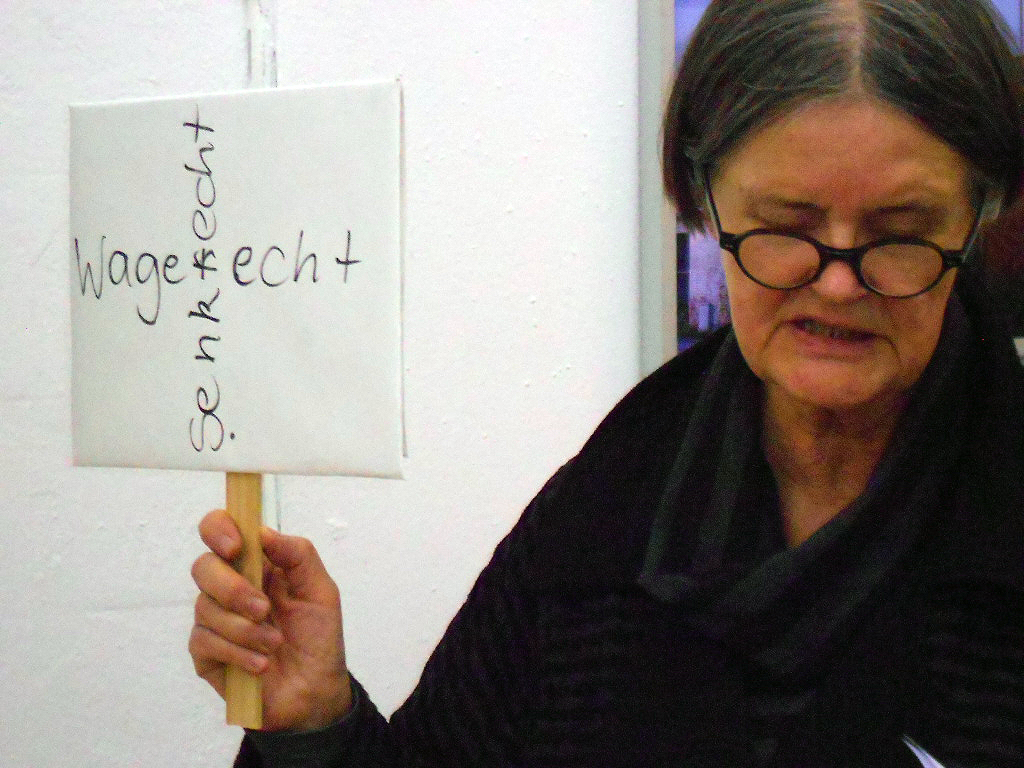 Wagerecht
Senkrecht